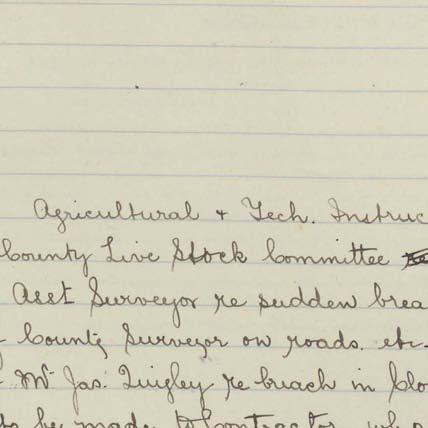 Agricultural + Tech. Instruc
County Live Stock Committee
Asst Surveyor re sudden brea
County Surveyor on roads. etc.
Mr Jas. Quigley re breach in Clo
to be made to Contractor who